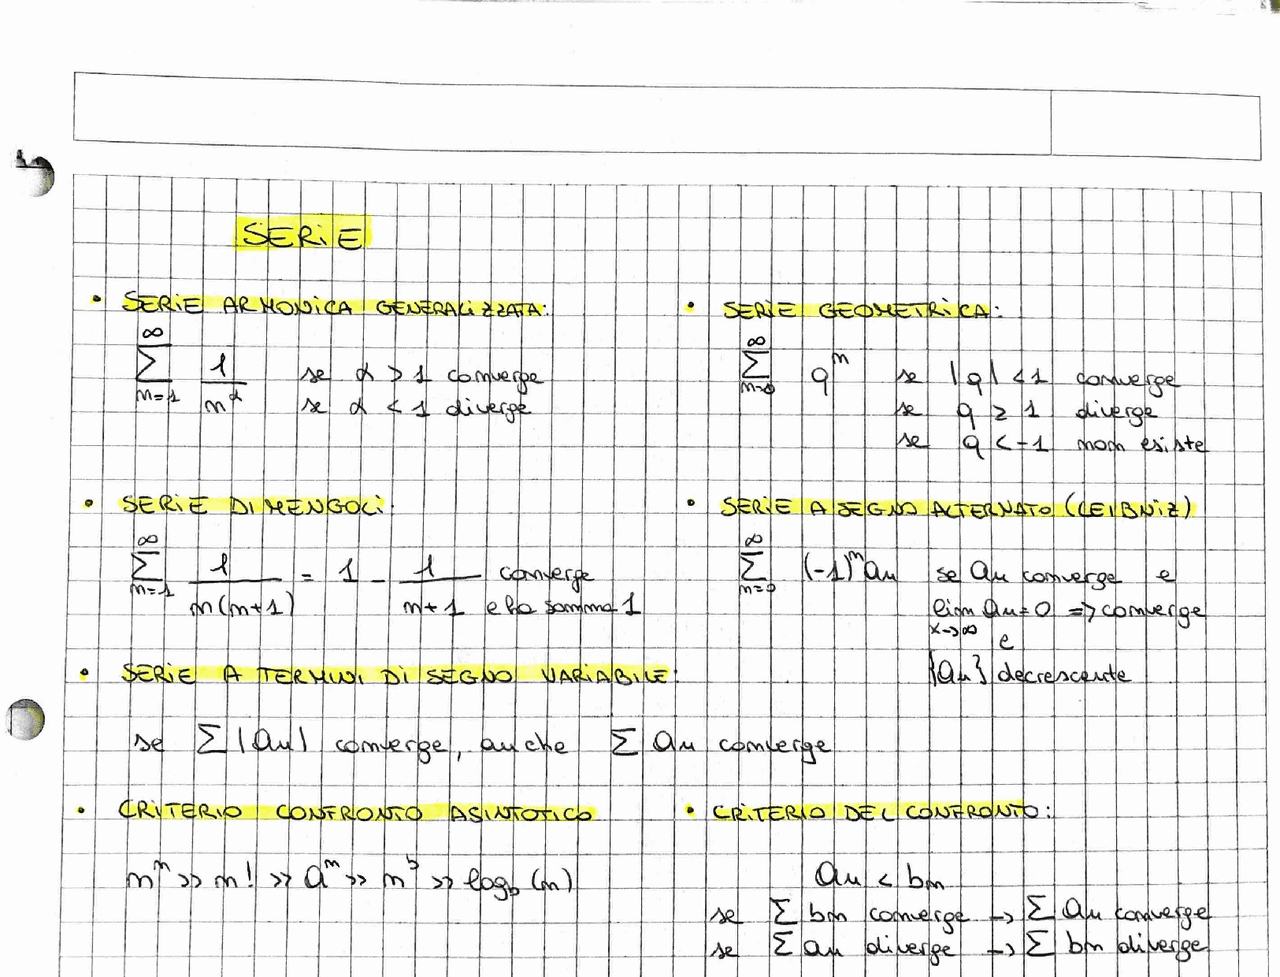 SERIE
• SERIE ARMONICA GENERALIZZATA:
∞
∑ 1/n^α se α > 1 converge
n=1 se α < 1 diverge
• SERIE GEOMETRICA:
∞
∑ q^n se |q| < 1 converge
n=0 se q ≥ 1 diverge
se q < -1 non esiste
• SERIE DI MENGOLI:
∞
∑ 1/(n(n+1)) = 1 - 1/(n+1) converge
n=1 e ha somma 1
• SERIE A SEGNO ALTERNATO (LEIBNIZ)
∞
∑ (-1)^n an se an converge e
n=0 lim an = 0 => converge
x→∞ e
{an} decrescente
• SERIE A TERMINI DI SEGNO VARIABILE:
se ∑ |an| converge, anche ∑ an converge
• CRITERIO CONFRONTO ASINTOTICO
n^n >> n! >> a^n >> n^b >> log_b (n)
• CRITERIO DEL CONFRONTO:
an < bn
se ∑ bn converge → ∑ an converge
se ∑ an diverge → ∑ bn diverge